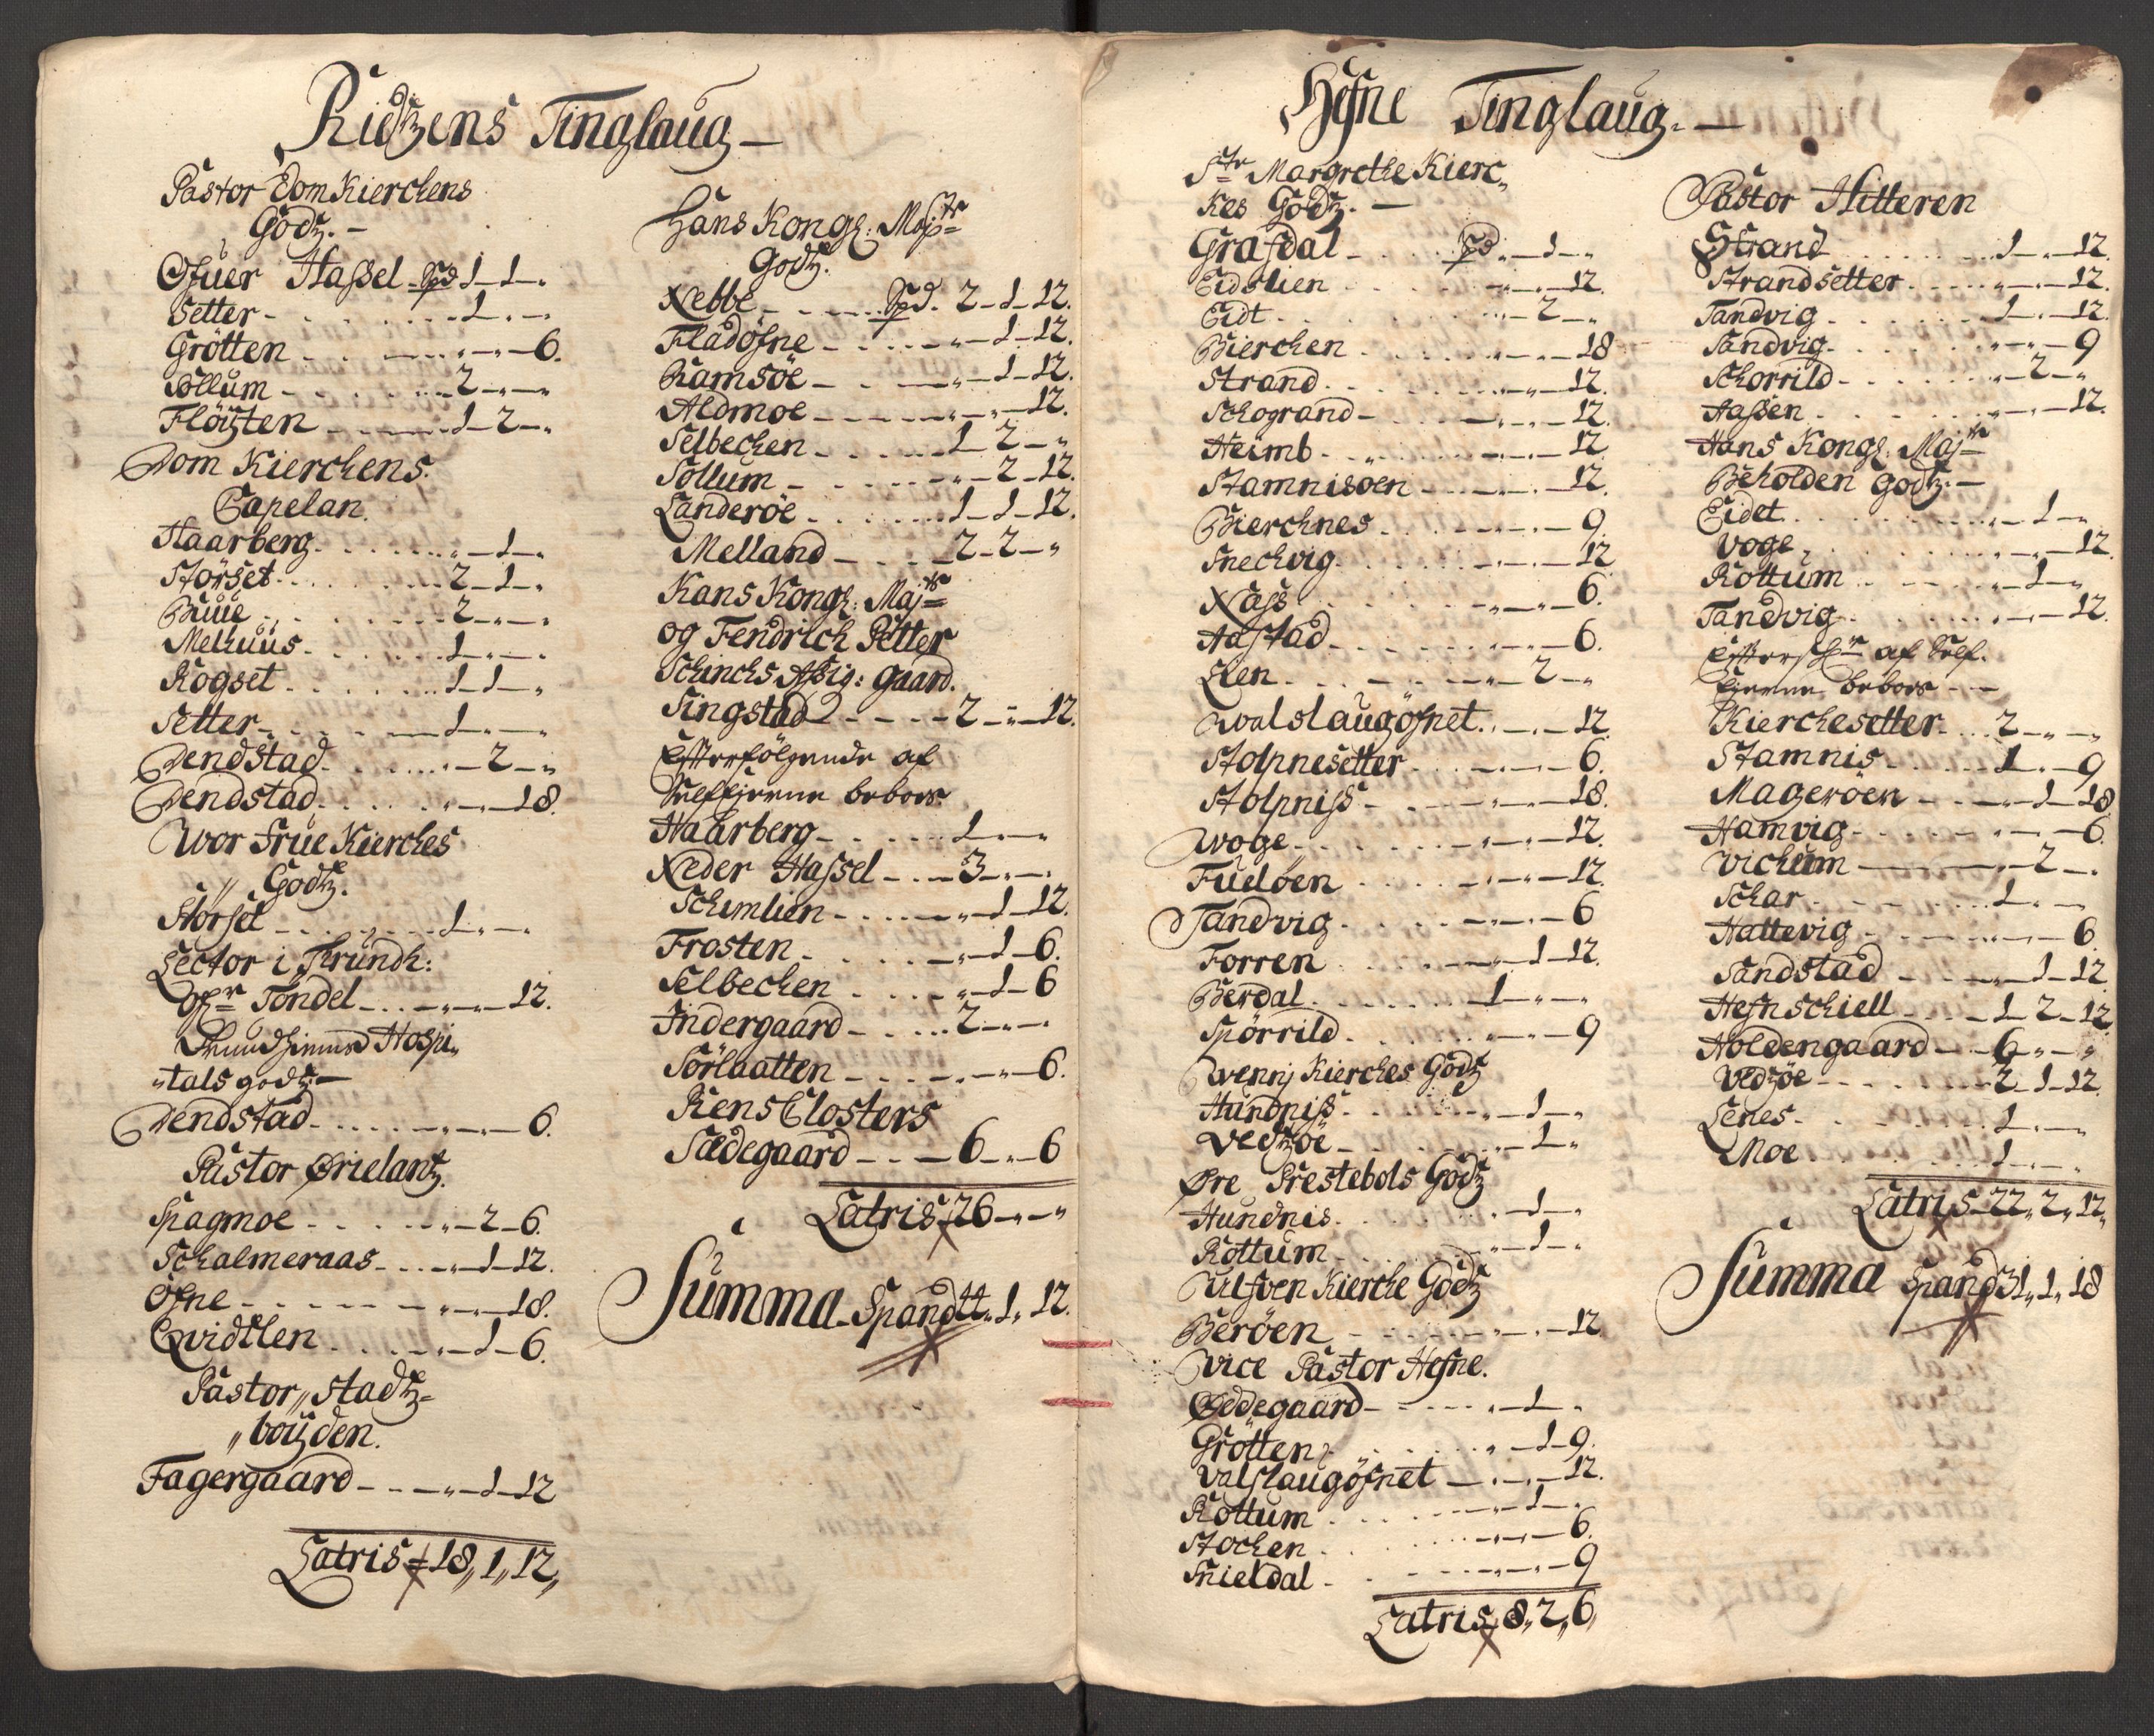 Ridtzens Tinglaug
Pastor Dom Kierchens
Godtz.
Ofuer Hassel - Spd 1 - 1 - „
Setter - 1 - „ - „
Grötten - „ - „ - 6.
Sollum - 2 - „ - „
Flöyten - 1 - 2 - „
Dom Kierchens
Capelan.
Haarberg - „ - 1 - „
Störset - 2 - 1 - „
Büue - 2 - „ - „
Melhuus - 1 - „ - „
Rögset - 1 - 1 - „
Setter - 1 - „ - „
Dendstad - „ - 2 - „
Dendstad - „ - „ - 18.
Wor Früe Kierches
„ Godtz.
Störset - 1 - „ - „
Lector i Trundh:
Töndel - „ - „ - 12.
Trundhiembs Hospi„
„tals godtz
Dendstad - „ - „ - 6.
Pastor Ørielantz.
Spagmoe - „ - 2 - 6.
Schalmeraas - „ - 1 - 12.
Öfne - „ - „ - 18.
Qvidtlen - „ - 1 - 6.
Pastor „ Stadtz-
„ boyden.
Fagergaard - „ - 1 - 12
Latris 18 „ 1 „ 12 „
Hans Kongl: Majts
Godtz.
Nebbe - Spd. 2 - 1 - 12.
Fladöfne - „ - 1 - 12.
Ramsöe - „ - 1 - 12.
Aldmoe - „ - „ - 12.
Selbechen - 1 - 2 - „
Sollum - „ - 2 - 12.
Landeröe - 1 - 1 - 12.
Melland - 2 - 2 - „
Hans Kongl: Majts
og Fendrich Petter
Schinchs Assig: gaard.
Singstad - 2 - „ - 12.
Efterfölgende af
Selfeierne beboes
Haarberg - 1 - „ - „
Neder Hassel - 3 - „ - „
Schimlien - „ - 1 - 12.
Frosten - „ - 1 - 6.
Selbechen - „ - 1 - 6
Indergaard - 2 - „ - „
Sörhatten - „ - „ - 6.
Rens Closters
Sædegaard - 6 - „ - 6
Latris 26 - „ - „
Summa Spand 44 „ 1 „ 12.
Hefne Tinglaug.
Str Margrethe Kierc„
kes Godtz.
Grafdal - Spd „ - 1 - „
Eidslien - „ - „ - 12.
Eidt - „ - 2 - „
Bierchen - „ - „ - 18
Strand - „ - „ - 12.
Schogrand - „ - „ - 12.
Heimb - „ - „ - 12.
Stamnisöen - „ - „ - 12.
Bierchnes - „ - „ - 9.
Snechvig - „ - „ - 12
Næss - „ - „ - 6.
Aastad - „ - „ - 6.
Lien - „ - 2 - „
Walslaugöfnet - „ - „ - 12.
Stolpnesetter - „ - „ - 6.
Stolpniss - „ - „ - 18.
Woge - „ - „ - 12.
Fuelöen - „ - „ - 12.
Sandvig - „ - „ - 6
Forren - „ - 1 - 12.
Berdal - 1 - „ - „
Spörrild - „ - „ - 9
Wenny Kierches Godtz
Hundniss - „ - 1 - „
Vedtzöe - „ - 1 - „
Øre Prestebols Godtz
Hundnis - „ - 1 - „
Rottum - „ - 1 - „
Ulfven Kierche Godtz
Beröen - „ - „ - 12.
Vice Pastor Hefne.
Ødegaard - „ - 1 - „
Grötten - „ - 1 - 9.
Valslaugöfnet - „ - „ - 12.
Rottum - „ - 1 - „
Stochen - „ - „ - 6.
Snieldal - „ - „ - 9
Latris 8 „ 2 „ 6 „
Pastor Hitteren
Strand - 1 - „ - 12.
Strandsetter - „ - „ - 12.
Tandvig - 1 - „ - 12.
Sandvig - „ - „ - 9
Schorrild - „ - 2 - „
Aassen - „ - „ - 12.
Hans Kongl: Majts
Beholden Godtz.
Eidet - „ - 1 - „
Voge - „ - „ - 12.
Rottum - „ - 1 - „
Tandvig - „ - „ - 12.
af Self„
Eierne beboes
Kierchesetter - 2 - „ - „
Stamnis - 1 - „ - 9
Mageröen - „ - 1 - 18
Hamvig - „ - „ - 6.
Vichum - „ - 2 - „
Schar - 1 - „ - „
Hattevig - „ - „ - 6
Sandstad - „ - 1 - 12.
Hefnschiell - 1 - 2 - 12.
Holdengaard - 6 - „ - „
Vedtzöe - 2 - 1 - 12.
Lenes - 1 - „ - „
Moe - 1 - „ - „
Latris 22 „ 2 „ 12 „
Summa Spand 31 „ 1 „ 18